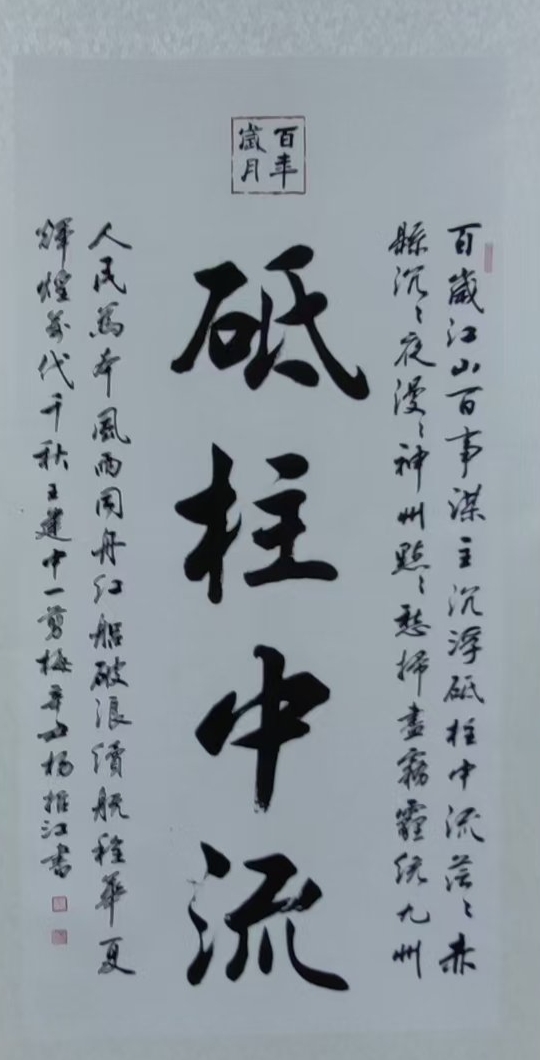 百年
歲月
百歲江山百事謀主沉浮砥柱中流茫〻赤
縣沉〻夜漫〻神州點〻愁掃盡霧霾統九州
砥柱中流
人民為本風雨同舟紅船破浪續航程華夏
輝煌萬代千秋王建中一剪梅辛丑楊振江書